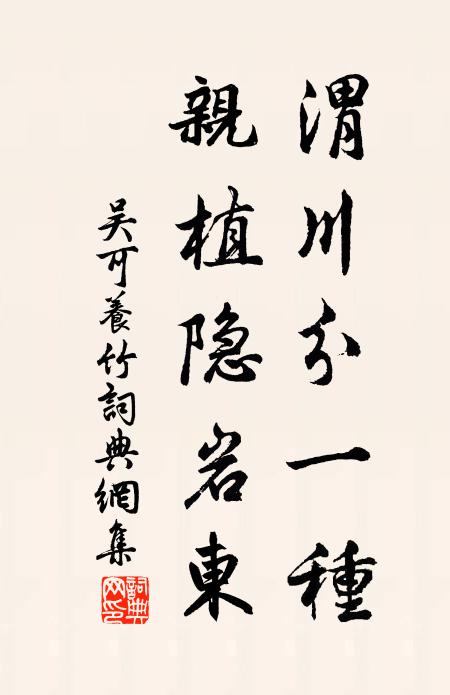 渭川分一種
親植隐岩東
吴可養竹詞典網集
詞典網印